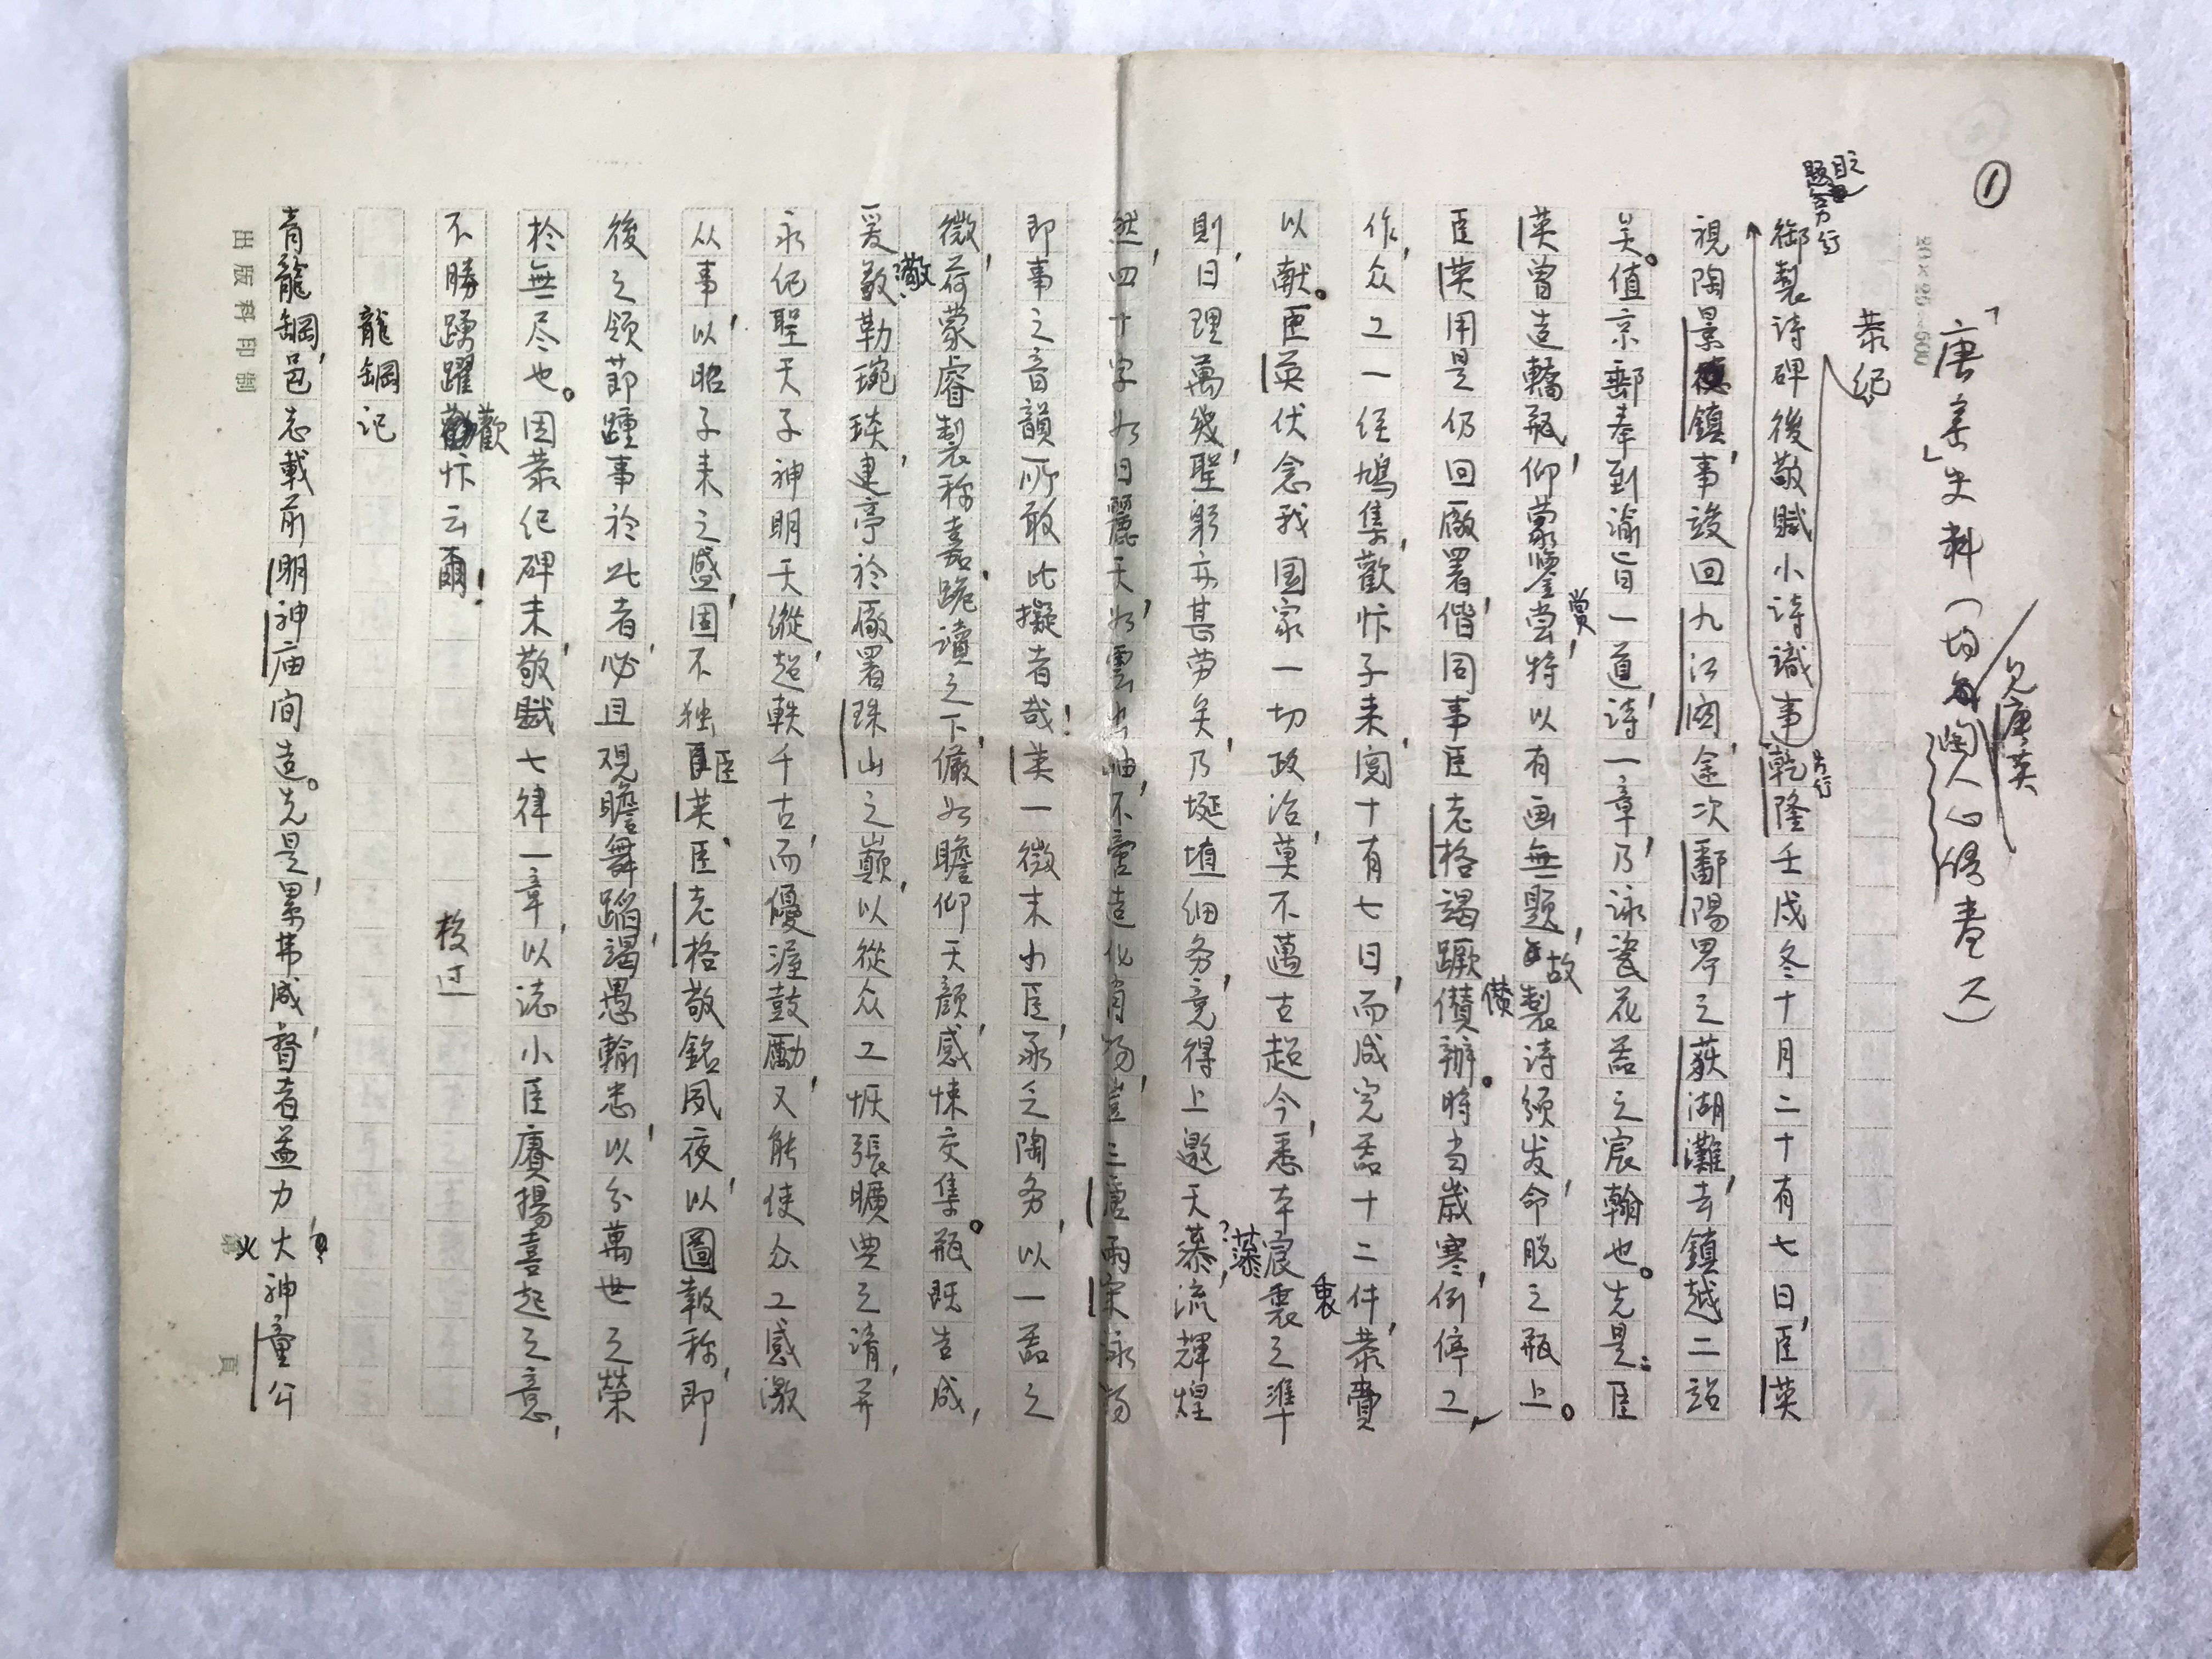 ①
「唐窑」史料（均自陶人心語卷六）
見唐英
恭紀
題目之
另行
御製诗碑後敬賦小诗識事乾隆壬戌冬十月二十有七日，臣英
另行
視陶景德镇事，竣回九江関，途次鄱陽界之荻湖灘，去鎮越二站
矣。值京郵奉到諭旨一道，诗一章，乃詠瓷花缶之宸翰也。先是：臣
英曾造轎瓶，仰蒙鑒尝賞，特以有画無題，故製诗须发命，脱之瓶上。
臣英用是仍回廠署，偕同事臣老格竭蹶儧儧辦。時当歲寒，例停工
作，众工一经鳩集，歡忭子来，閲十有七日，而咸完缶十二件，恭賫
以献。臣英伏念我国家一切政治，莫不邁古超今，悉本宸衷衷之準
則，日理萬幾，聖躬亦甚劳矣，乃埏埴细务，竟得上邀天藻？藻流，輝煌
然，四十字如日麗天，如雲出岫，不啻造化肖物，豈三唐兩宋詠物
即事之音韻所敢比擬者哉！英一微末小臣，承乏陶务，以一缶之
微，荷蒙睿製称嘉，跪讀之下，儼如瞻仰天顔，感悚交集。瓶既告成，
爰敬敬勒琬琰，建亭於廠署珠山之巔，以從众工恢張曠典之請，并
永纪聖天子神明天縱，超軼千古，而優渥鼓勵，又能使众工感激
从事，以昭子来之盛，固不独臣英、臣老格敬銘夙夜，以圖報称，即
後之领節踵事於此者，必且观瞻舞蹈，竭愚輸悉，以分萬世之榮
於無尽也。因恭纪碑末，敬賦七律一章，以誌小臣賡揚喜起之意，
不勝踴躍歡忭云爾！
校过
龍鋼记
青龍鋼，邑志載前明神庙间造。先是，累弗成，督者益力，火神童公
20×25=600
出版科印制
第
頁